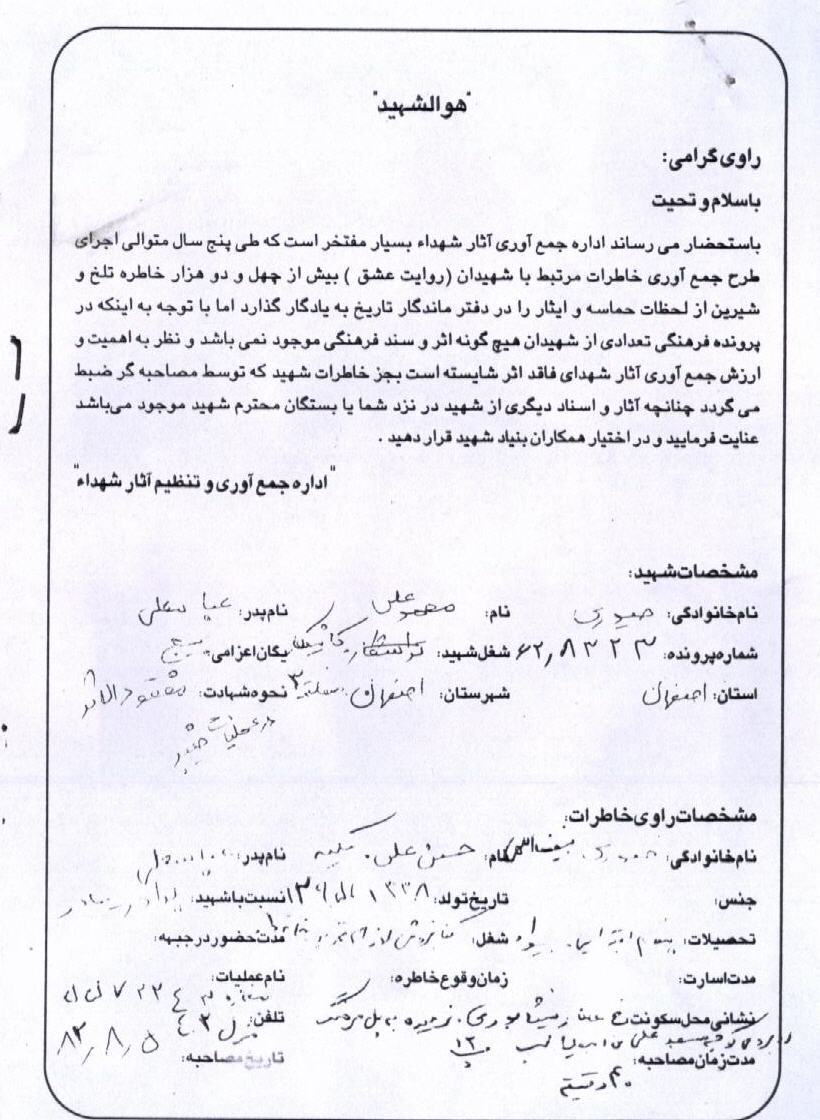 "هوالشهید"
راوی گرامی:
باسلام و تحیت
باستحضار می رساند اداره جمع آوری آثار شهداء بسیار مفتخر است که طی پنج سال متوالی اجرای
طرح جمع آوری خاطرات مرتبط با شهیدان (روایت عشق ) بیش از چهل و دو هزار خاطره تلخ و
شیرین از لحظات حماسه و ایثار را در دفتر ماندگار تاریخ به یادگار گذارد اما با توجه به اینکه در
پرونده فرهنگی تعدادی از شهیدان هیچ گونه اثر و سند فرهنگی موجود نمی باشد و نظر به اهمیت و
ارزش جمع آوری آثار شهدای فاقد اثر شایسته است بجز خاطرات شهید که توسط مصاحبه گر ضبط
می گردد چنانچه آثار و اسناد دیگری از شهید در نزد شما یا بستگان محترم شهید موجود می‌باشد
عنایت فرمایید و در اختیار همکاران بنیاد شهید قرار دهید .
"اداره جمع آوری و تنظیم آثار شهداء"
مشخصات شهید:
نام‌خانوادگی: حیدری نام: محمد علی نام‌پدر: عباسعلی
شماره‌پرونده: ۶۲٫۸۳۲۳ شغل‌شهید: یگان‌اعزامی: بسیج
استان: اصفهان شهرستان: اصفهان نحوه‌شهادت: مفقودالاثر
در عملیات خیبر
مشخصات راوی خاطرات:
نام‌خانوادگی: حیدری نام: حسین علی نام‌پدر: عباسعلی
جنس: تاریخ‌تولد: ۱۳۳۸ نسبت‌باشهید: برادر
تحصیلات: پنجم ابتدایی شغل: مدت‌حضوردرجبهه:
مدت‌اسارت: زمان‌وقوع‌خاطره: نام‌عملیات:
نشانی‌محل‌سکونت: تلفن:
مدت‌زمان‌مصاحبه: ۴۰ دقیقه تاریخ‌مصاحبه: ۸۲٫۸٫۵